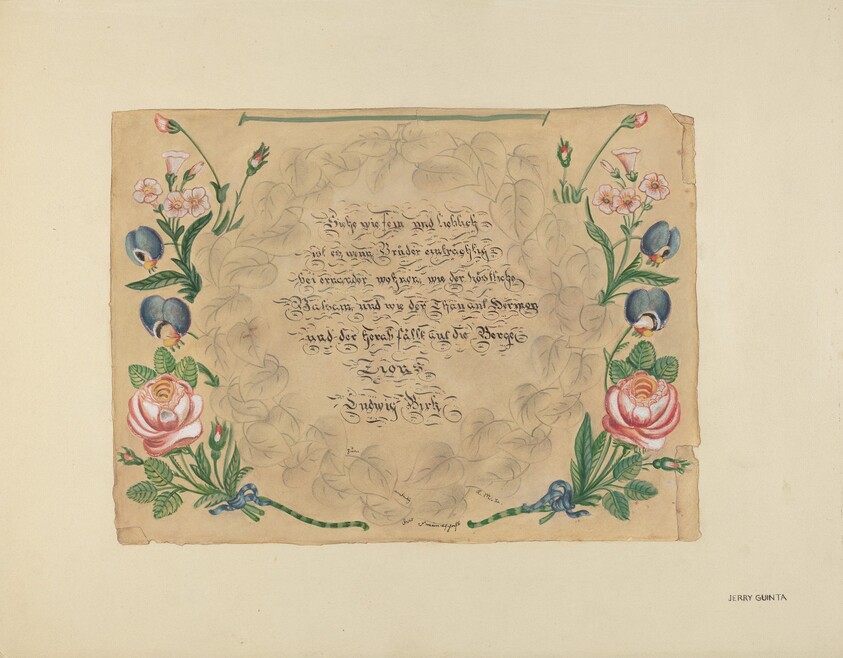 Siehe wie fein und lieblich
ist es wenn Brüder einträchtig
bei einander wohnen, wie der köstliche
Balsam und wie der Thau auf Hermon
und der herab fällt auf die Berge
Zions
Ludwig Birk
JERRY GUINTA